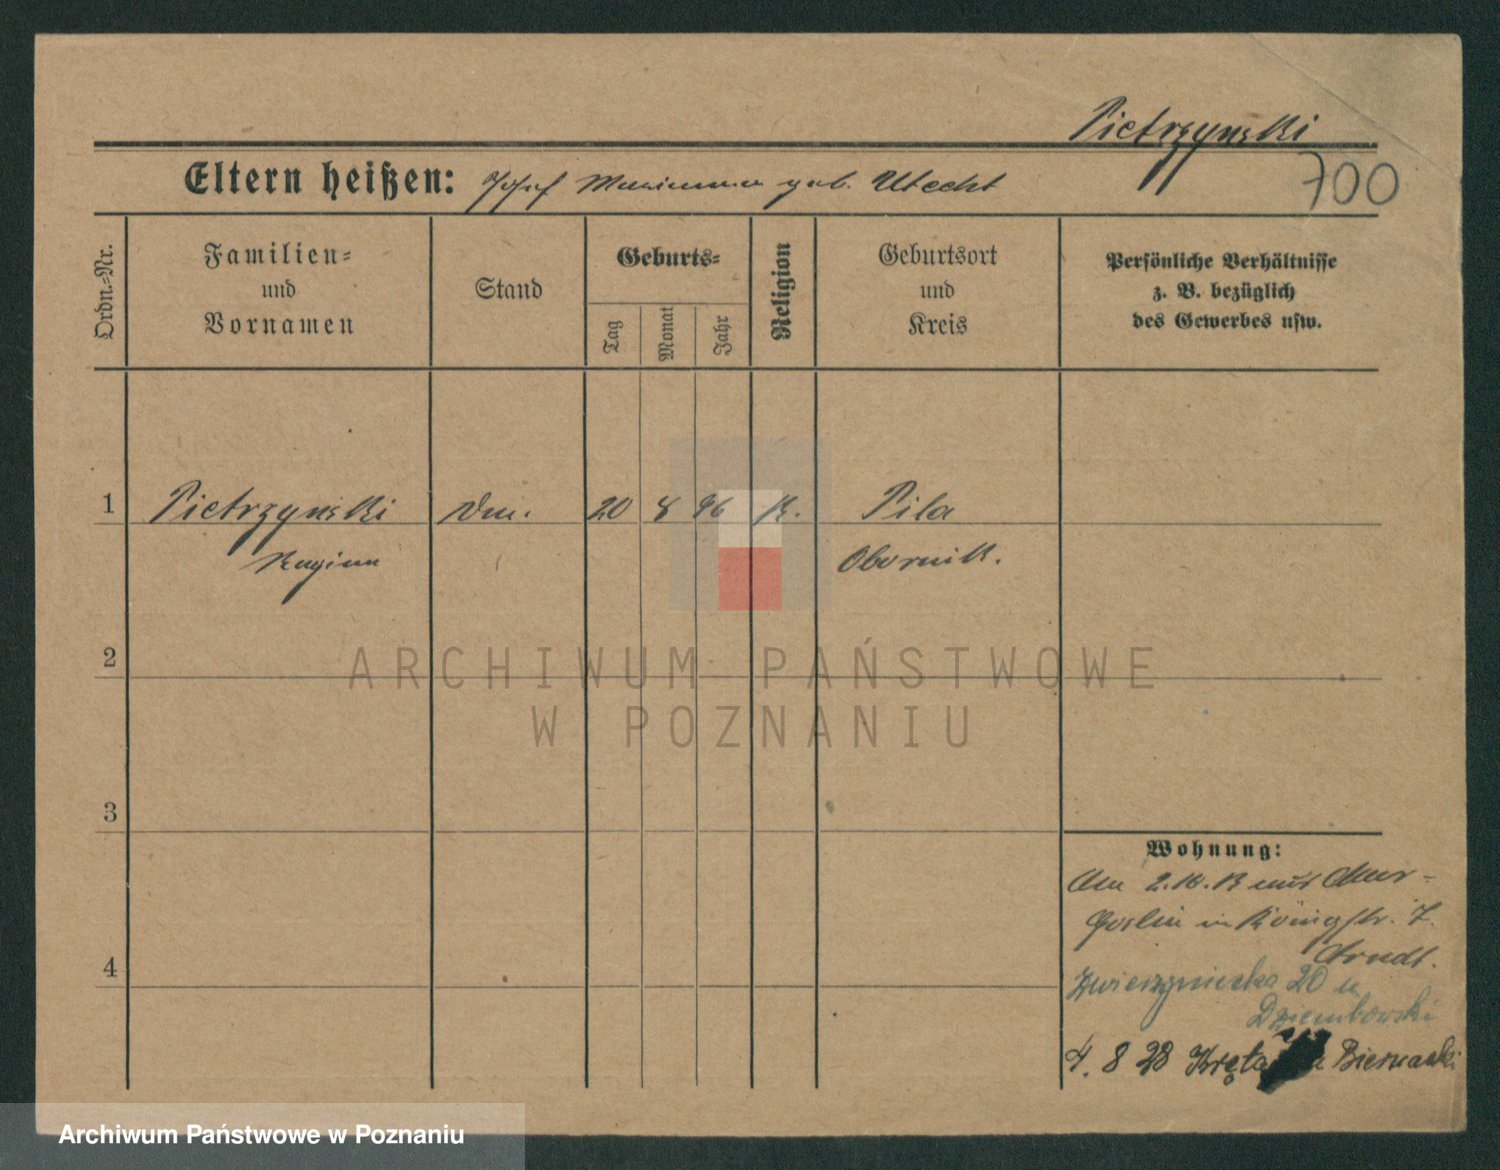 Pietrzynski
700
Eltern heißen: Josef Marianna geb. Utecht
Ordn.=Nr.
Familien=
und
Vornamen
Stand
Geburts=
Tag
Monat
Jahr
Religion
Geburtsort
und
Kreis
Persönliche Verhältnisse
z. B. bezüglich
des Gewerbes usw.
1 Pietrzynski 20 8 96 K. Pila
Regina Obornik.
2
3
4
Wohnung:
Am 2.10.13 aus Mur-
Goslin in Königstr. 7.
Arndt.
Zwierzyniecka 20 u
Dziembowski
4. 8 28 Kręta Biernacki
ARCHIWUM PAŃSTWOWE
W POZNANIU
Archiwum Państwowe w Poznaniu